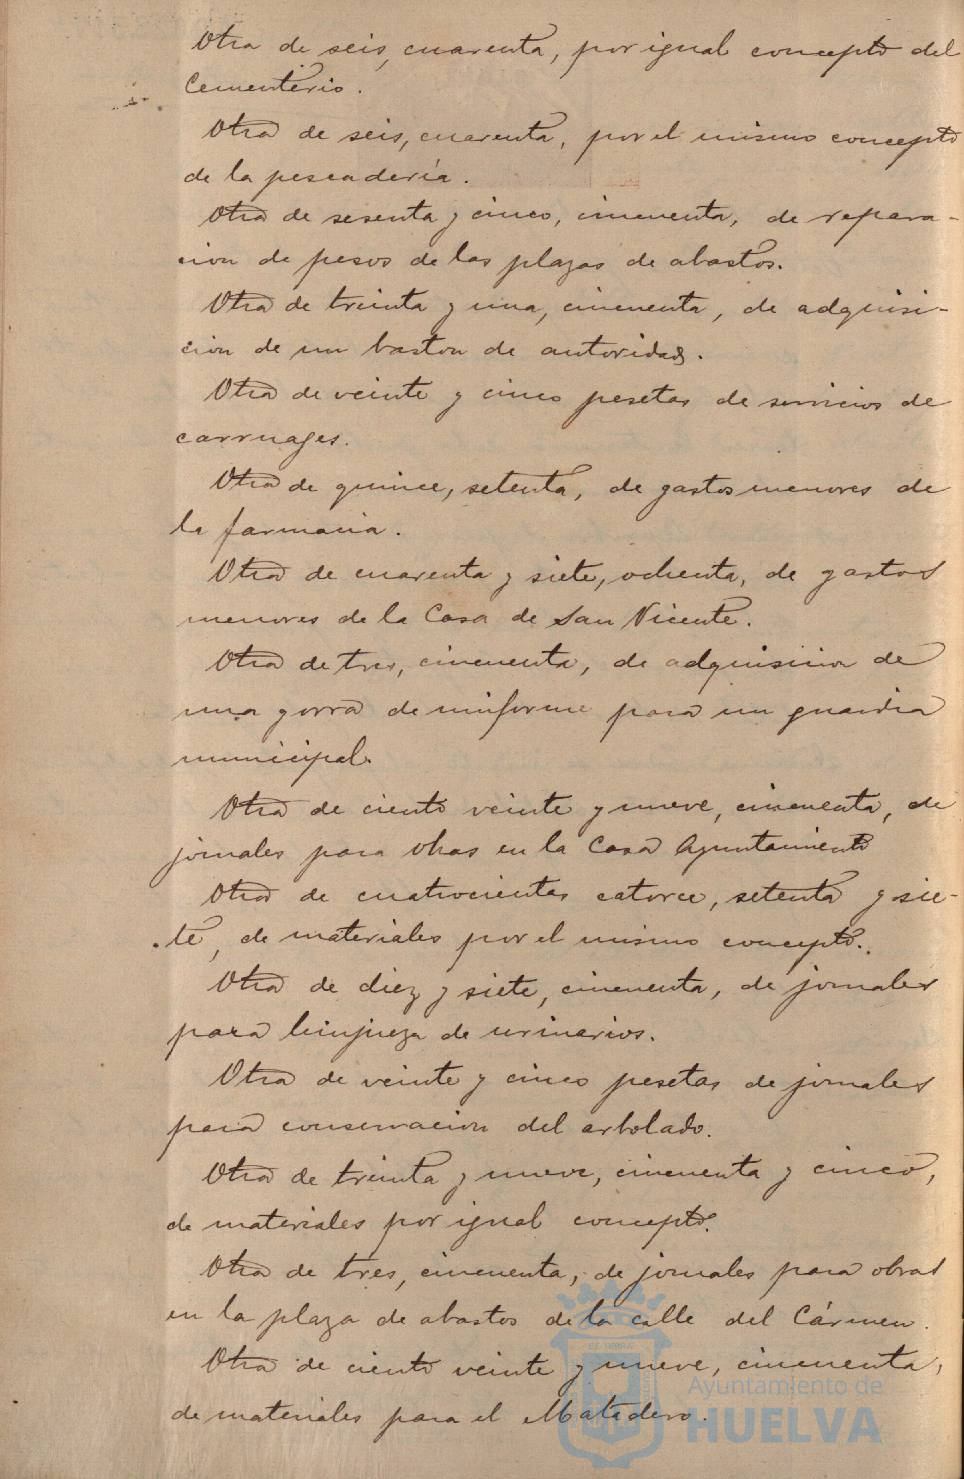 Otra de seis, cuarenta, por igual concepto del
Cementerio.
Otra de seis, cuarenta, por el mismo concepto
de la pescadería.
Otra de sesenta y cinco, cincuenta, de repara-
cion de pesos de las plazas de abastos.
Otra de treinta y una, cincuenta, de adquisi-
cion de un baston de autoridad.
Otra de veinte y cinco pesetas de servicios de
carruages.
Otra de quince, setenta, de gastos menores de
la farmacia.
Otra de cuarenta y siete, ochenta, de gastos
menores de la Casa de San Vicente.
Otra de tres, cincuenta, de adquisicion de
una gorra de uniforme para un guardia
municipal.
Otra de ciento veinte y nueve, cincuenta, de
jornales para obras en la Casa Ayuntamiento
Otra de cuatrocientas catorce, setenta y sie-
te, de materiales por el mismo concepto.
Otra de diez y siete, cincuenta, de jornales
para limpieza de urinarios.
Otra de veinte y cinco pesetas de jornales
para conservacion del arbolado.
Otra de treinta y nueve, cincuenta y cinco,
de materiales por igual concepto.
Otra de tres, cincuenta, de jornales para obras
en la plaza de abastos de la calle del Cármen.
Otra de ciento veinte y nueve, cincuenta,
de materiales para el Matadero.
Ayuntamiento de
HUELVA